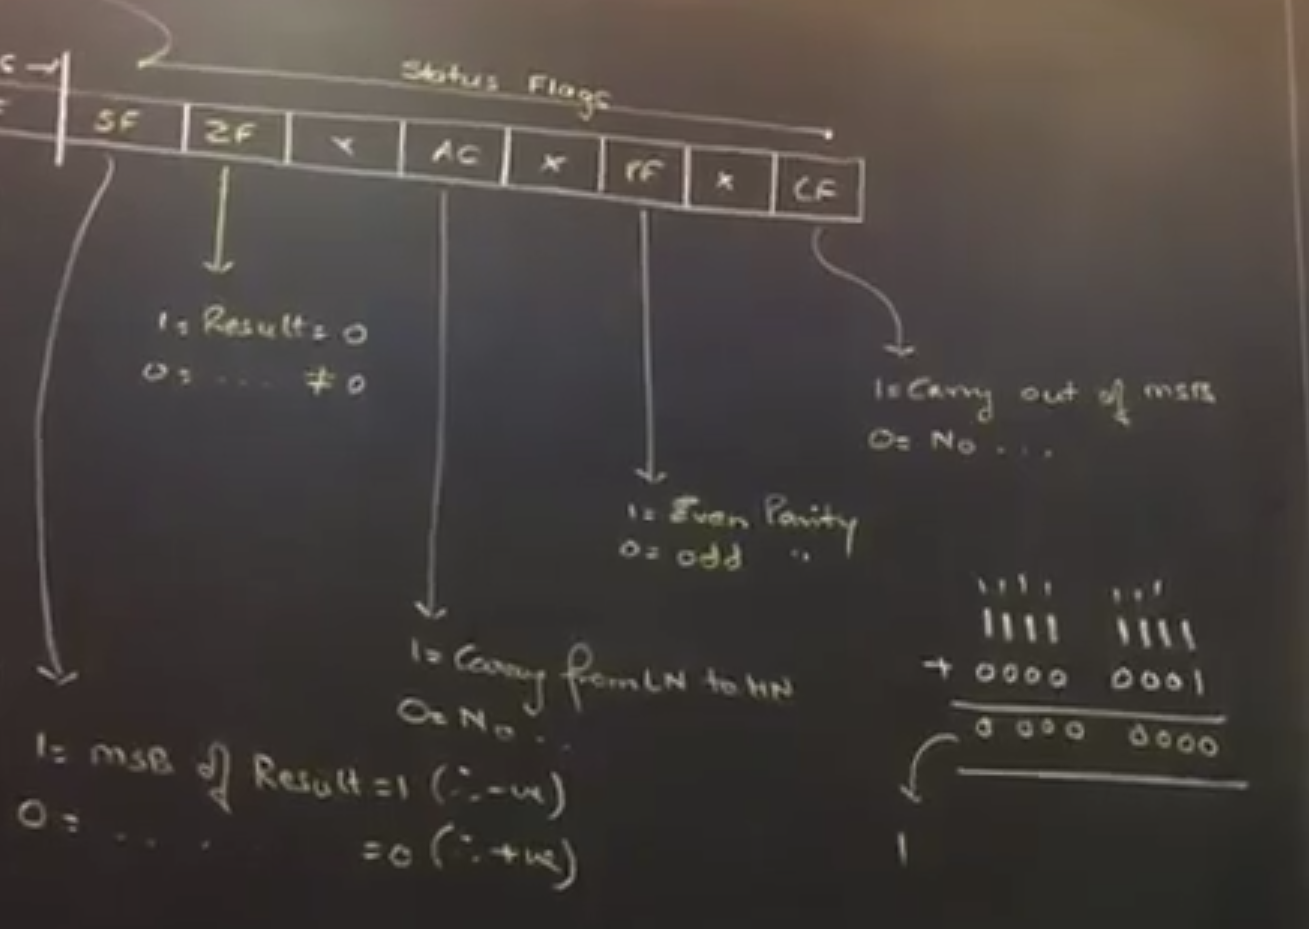 Status Flags
SF ZF x AC x PF x CF
1 = Result = 0
0 = .... ≠ 0
1 = Carry out of MSB
0 = No ...
1 = Even Parity
0 = odd "
1 = Carry from LN to HN
0 = No ..
1 = MSB of Result = 1 (∴ -ve)
0 = ... = 0 (∴ +ve)
1111 111
1111 1111
+ 0000 0001
0000 0000
1